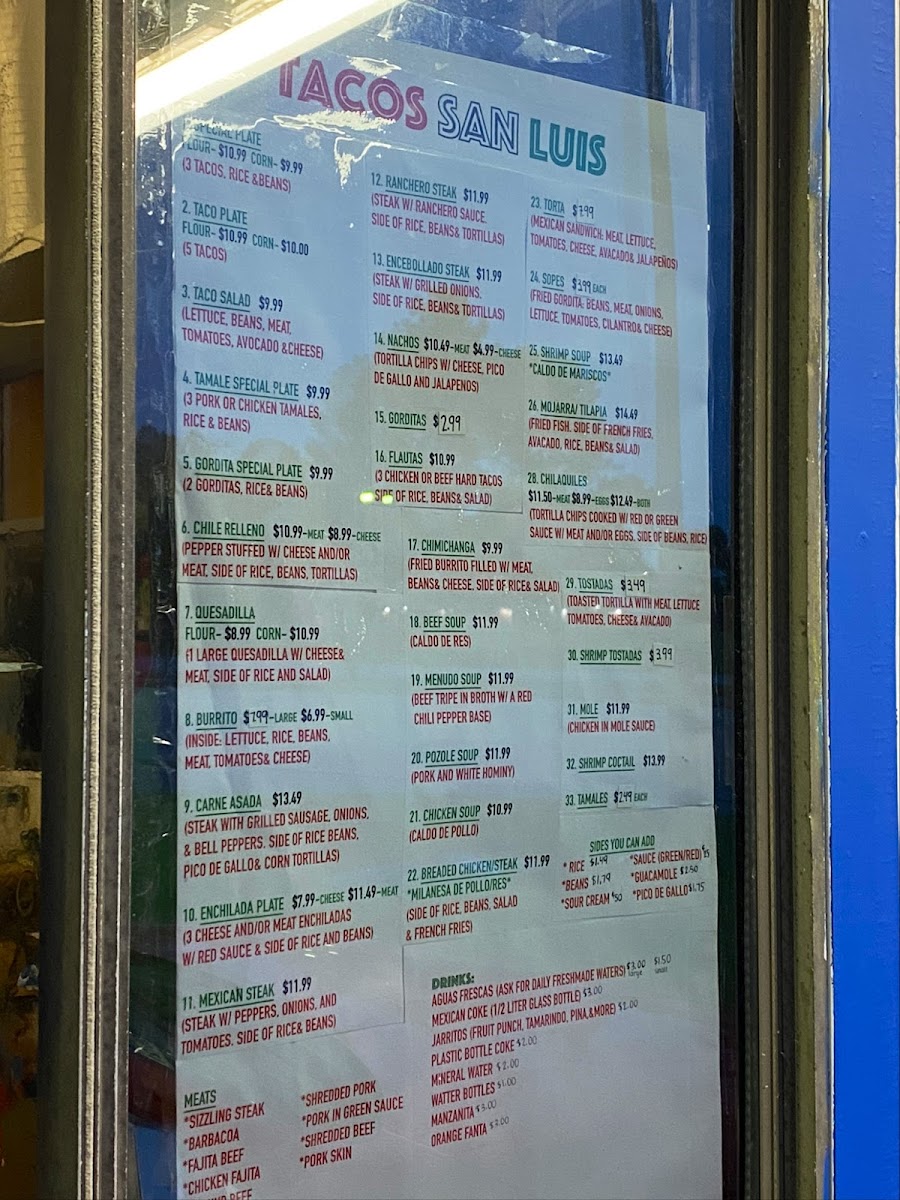 TACOS SAN LUIS
SPECIAL PLATE
FLOUR- $10.99 CORN- $9.99
(3 TACOS, RICE &BEANS)
2. TACO PLATE
FLOUR- $10.99 CORN- $10.00
(5 TACOS)
3. TACO SALAD $9.99
(LETTUCE, BEANS, MEAT,
TOMATOES, AVOCADO &CHEESE)
4. TAMALE SPECIAL PLATE $9.99
(3 PORK OR CHICKEN TAMALES,
RICE & BEANS)
5. GORDITA SPECIAL PLATE $9.99
(2 GORDITAS, RICE& BEANS)
6. CHILE RELLENO $10.99-MEAT $8.99-CHEESE
(PEPPER STUFFED W/ CHEESE AND/OR
MEAT, SIDE OF RICE, BEANS, TORTILLAS)
7. QUESADILLA
FLOUR- $8.99 CORN- $10.99
(1 LARGE QUESADILLA W/ CHEESE&
MEAT, SIDE OF RICE AND SALAD)
8. BURRITO $7.99-LARGE $6.99-SMALL
(INSIDE: LETTUCE, RICE, BEANS,
MEAT, TOMATOES& CHEESE)
9. CARNE ASADA $13.49
(STEAK WITH GRILLED SAUSAGE, ONIONS,
& BELL PEPPERS. SIDE OF RICE BEANS,
PICO DE GALLO& CORN TORTILLAS)
10. ENCHILADA PLATE $7.99-CHEESE $11.49-MEAT
(3 CHEESE AND/OR MEAT ENCHILADAS
W/ RED SAUCE & SIDE OF RICE AND BEANS)
11. MEXICAN STEAK $11.99
(STEAK W/ PEPPERS, ONIONS, AND
TOMATOES. SIDE OF RICE& BEANS)
MEATS
*SIZZLING STEAK
*BARBACOA
*FAJITA BEEF
*CHICKEN FAJITA
BEEF
*SHREDDED PORK
*PORK IN GREEN SAUCE
*SHREDDED BEEF
*PORK SKIN
12. RANCHERO STEAK $11.99
(STEAK W/ RANCHERO SAUCE,
SIDE OF RICE, BEANS& TORTILLAS)
13. ENCEBOLLADO STEAK $11.99
(STEAK W/ GRILLED ONIONS,
SIDE OF RICE, BEANS& TORTILLAS)
14. NACHOS $10.49-MEAT $4.99-CHEESE
(TORTILLA CHIPS W/ CHEESE, PICO
DE GALLO AND JALAPENOS)
15. GORDITAS $2.99
16. FLAUTAS $10.99
(3 CHICKEN OR BEEF HARD TACOS
SIDE OF RICE, BEANS& SALAD)
17. CHIMICHANGA $9.99
(FRIED BURRITO FILLED W/ MEAT,
BEANS& CHEESE. SIDE OF RICE& SALAD)
18. BEEF SOUP $11.99
(CALDO DE RES)
19. MENUDO SOUP $11.99
(BEEF TRIPE IN BROTH W/ A RED
CHILI PEPPER BASE)
20. POZOLE SOUP $11.99
(PORK AND WHITE HOMINY)
21. CHICKEN SOUP $10.99
(CALDO DE POLLO)
22. BREADED CHICKEN/STEAK $11.99
*MILANESA DE POLLO/RES*
(SIDE OF RICE, BEANS, SALAD
& FRENCH FRIES)
23. TORTA $7.99
(MEXICAN SANDWICH: MEAT, LETTUCE,
TOMATOES, CHEESE, AVACADO& JALAPEÑOS)
24. SOPES $3.99 EACH
(FRIED GORDITA: BEANS, MEAT, ONIONS,
LETTUCE, TOMATOES, CILANTRO& CHEESE)
25. SHRIMP SOUP $13.49
*CALDO DE MARISCOS*
26. MOJARRA/ TILAPIA $14.49
(FRIED FISH, SIDE OF FRENCH FRIES,
AVACADO, RICE, BEANS& SALAD)
28. CHILAQUILES
$11.50-MEAT $8.99-EGGS $12.49-BOTH
(TORTILLA CHIPS COOKED W/ RED OR GREEN
SAUCE W/ MEAT AND/OR EGGS, SIDE OF BEANS, RICE)
29. TOSTADAS $3.49
(TOASTED TORTILLA WITH MEAT, LETTUCE
TOMATOES, CHEESE& AVACADO)
30. SHRIMP TOSTADAS $3.99
31. MOLE $11.99
(CHICKEN IN MOLE SAUCE)
32. SHRIMP COCTAIL $13.99
33. TAMALES $2.49 EACH
SIDES YOU CAN ADD
* RICE $1.49
*BEANS $1.79
*SOUR CREAM
*SAUCE (GREEN/RED)
*GUACAMOLE $2.50
*PICO DE GALLO $1.75
DRINKS:
AGUAS FRESCAS (ASK FOR DAILY FRESHMADE WATERS) $3.00 large $1.50 small
MEXICAN COKE (1/2 LITER GLASS BOTTLE) $3.00
JARRITOS (FRUIT PUNCH, TAMARINDO, PINA,&MORE) $2.00
PLASTIC BOTTLE COKE $2.00
MINERAL WATER $2.00
WATTER BOTTLES $1.00
MANZANITA $3.00
ORANGE FANTA $2.00